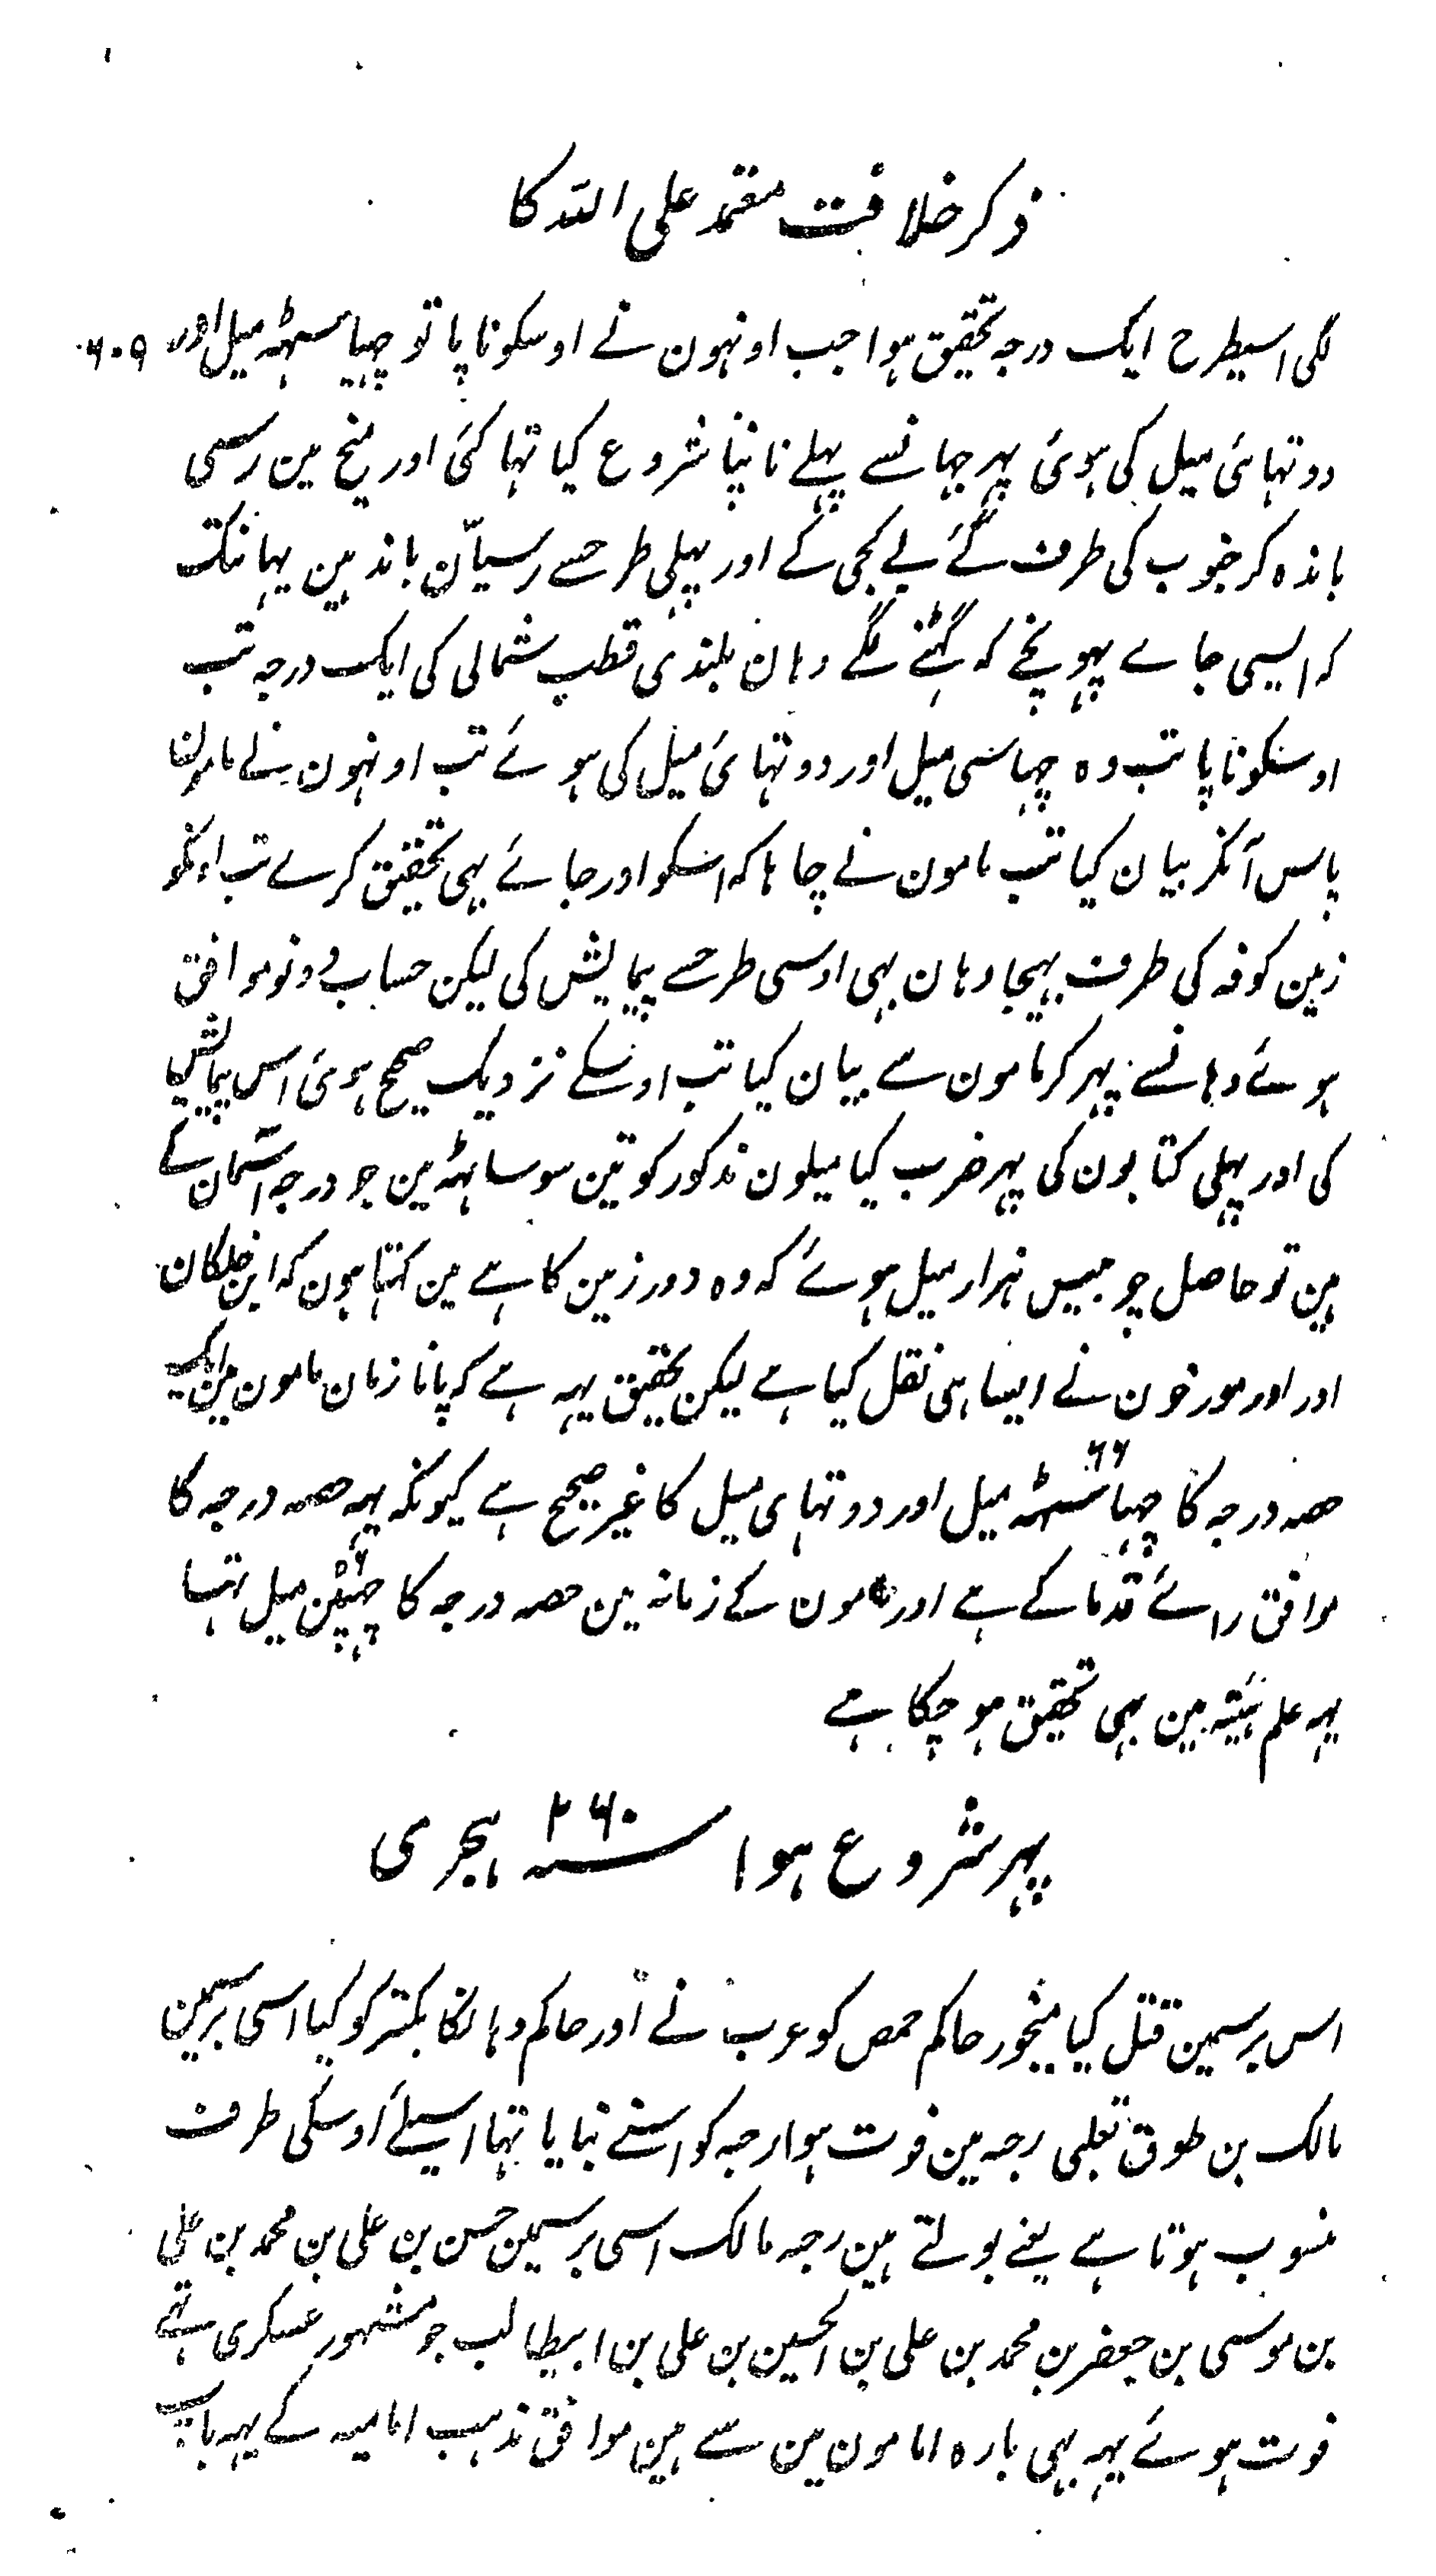 ذکر خلافت معتمد علی اللہ کا
لگی اسیطرح ایک درجہ تحقیق ہوا جب اونہون نے اوسکو ناپا تو چہیاسٹہہ میل اور ۶۰۹
دو تہائی میل کی ہوئی پہر جہانسے پہلے ناپنا شروع کیا تہا گئی اور میخ مین رسی
باندہ کر جنوب کی طرف گئے بے کجی کے اور پہلی طرحسے رسیان باندہین یہانتک
کہ ایسی جاے پہونچے کہ گہٹنے لگے وہان بلندی قطب شمالی کی ایک درجہ تب
اوسکو ناپا تب وہ چہیاسٹی میل اور دو تہائی میل کی ہوئے تب اونہون نے مامون
پاس آنکر بیان کیا تب مامون نے چاہا کہ اسکو اور جائے بہی تحقیق کرے تب اونکو
زمین کوفہ کی طرف بہیجا وہان بہی اوسی طرحسے پیمایش کی لیکن حساب دونو موافق
ہوئے وہانسے پہر کر مامون سے بیان کیا تب اوسکے نزدیک صحیح ہوئی اس پیمایش
کی اور پہلی کتابون کی پہر ضرب کیا میلون مذکور کو تین سو ساٹہہ مین جو درجہ آسمان کے
ہین تو حاصل چوبیس ہزار میل ہوئے کہ وہ دور زمین کا ہے مین کہتا ہون کہ ابن خلکان
اور اور مورخون نے ایسا ہی نقل کیا ہے لیکن تحقیق یہہ ہے کہ پانا زمان مامون مین ایک
حصہ درجہ کا چہیاسٹہہ ۶۶ میل اور دو تہای میل کا غیر صحیح ہے کیونکہ یہہ حصہ درجہ کا
موافق رائے قدما کے ہے اور مامون کے زمانہ مین حصہ درجہ کا چہپن ۵۶ میل تہا
یہہ علم ہئیتہ مین بہی تحقیق ہو چکا ہے
پہر شروع ہوا سنہ ۲۶۰ ہجری
اس برسمین قتل کیا منجور حاکم حمص کو عرب نے اور حاکم وہانکا بکتمر کو کیا اسی برسمین
مالک بن طوق تغلبی رحبہ مین فوت ہوا رحبہ کو اسنے بنایا تہا اسیلئے اوسکی طرف
منسوب ہوتا ہے یعنے بولتے ہین رحبہ مالک اسی برسمین حسن بن علی بن محمد بن علی
بن موسی بن جعفر بن محمد بن علی بن الحسین بن علی بن ابیطالب جو مشہور عسکری تہے
فوت ہوئے یہہ بہی بارہ امامون مین سے ہین موافق مذہب امامیہ کے یہہ باپ